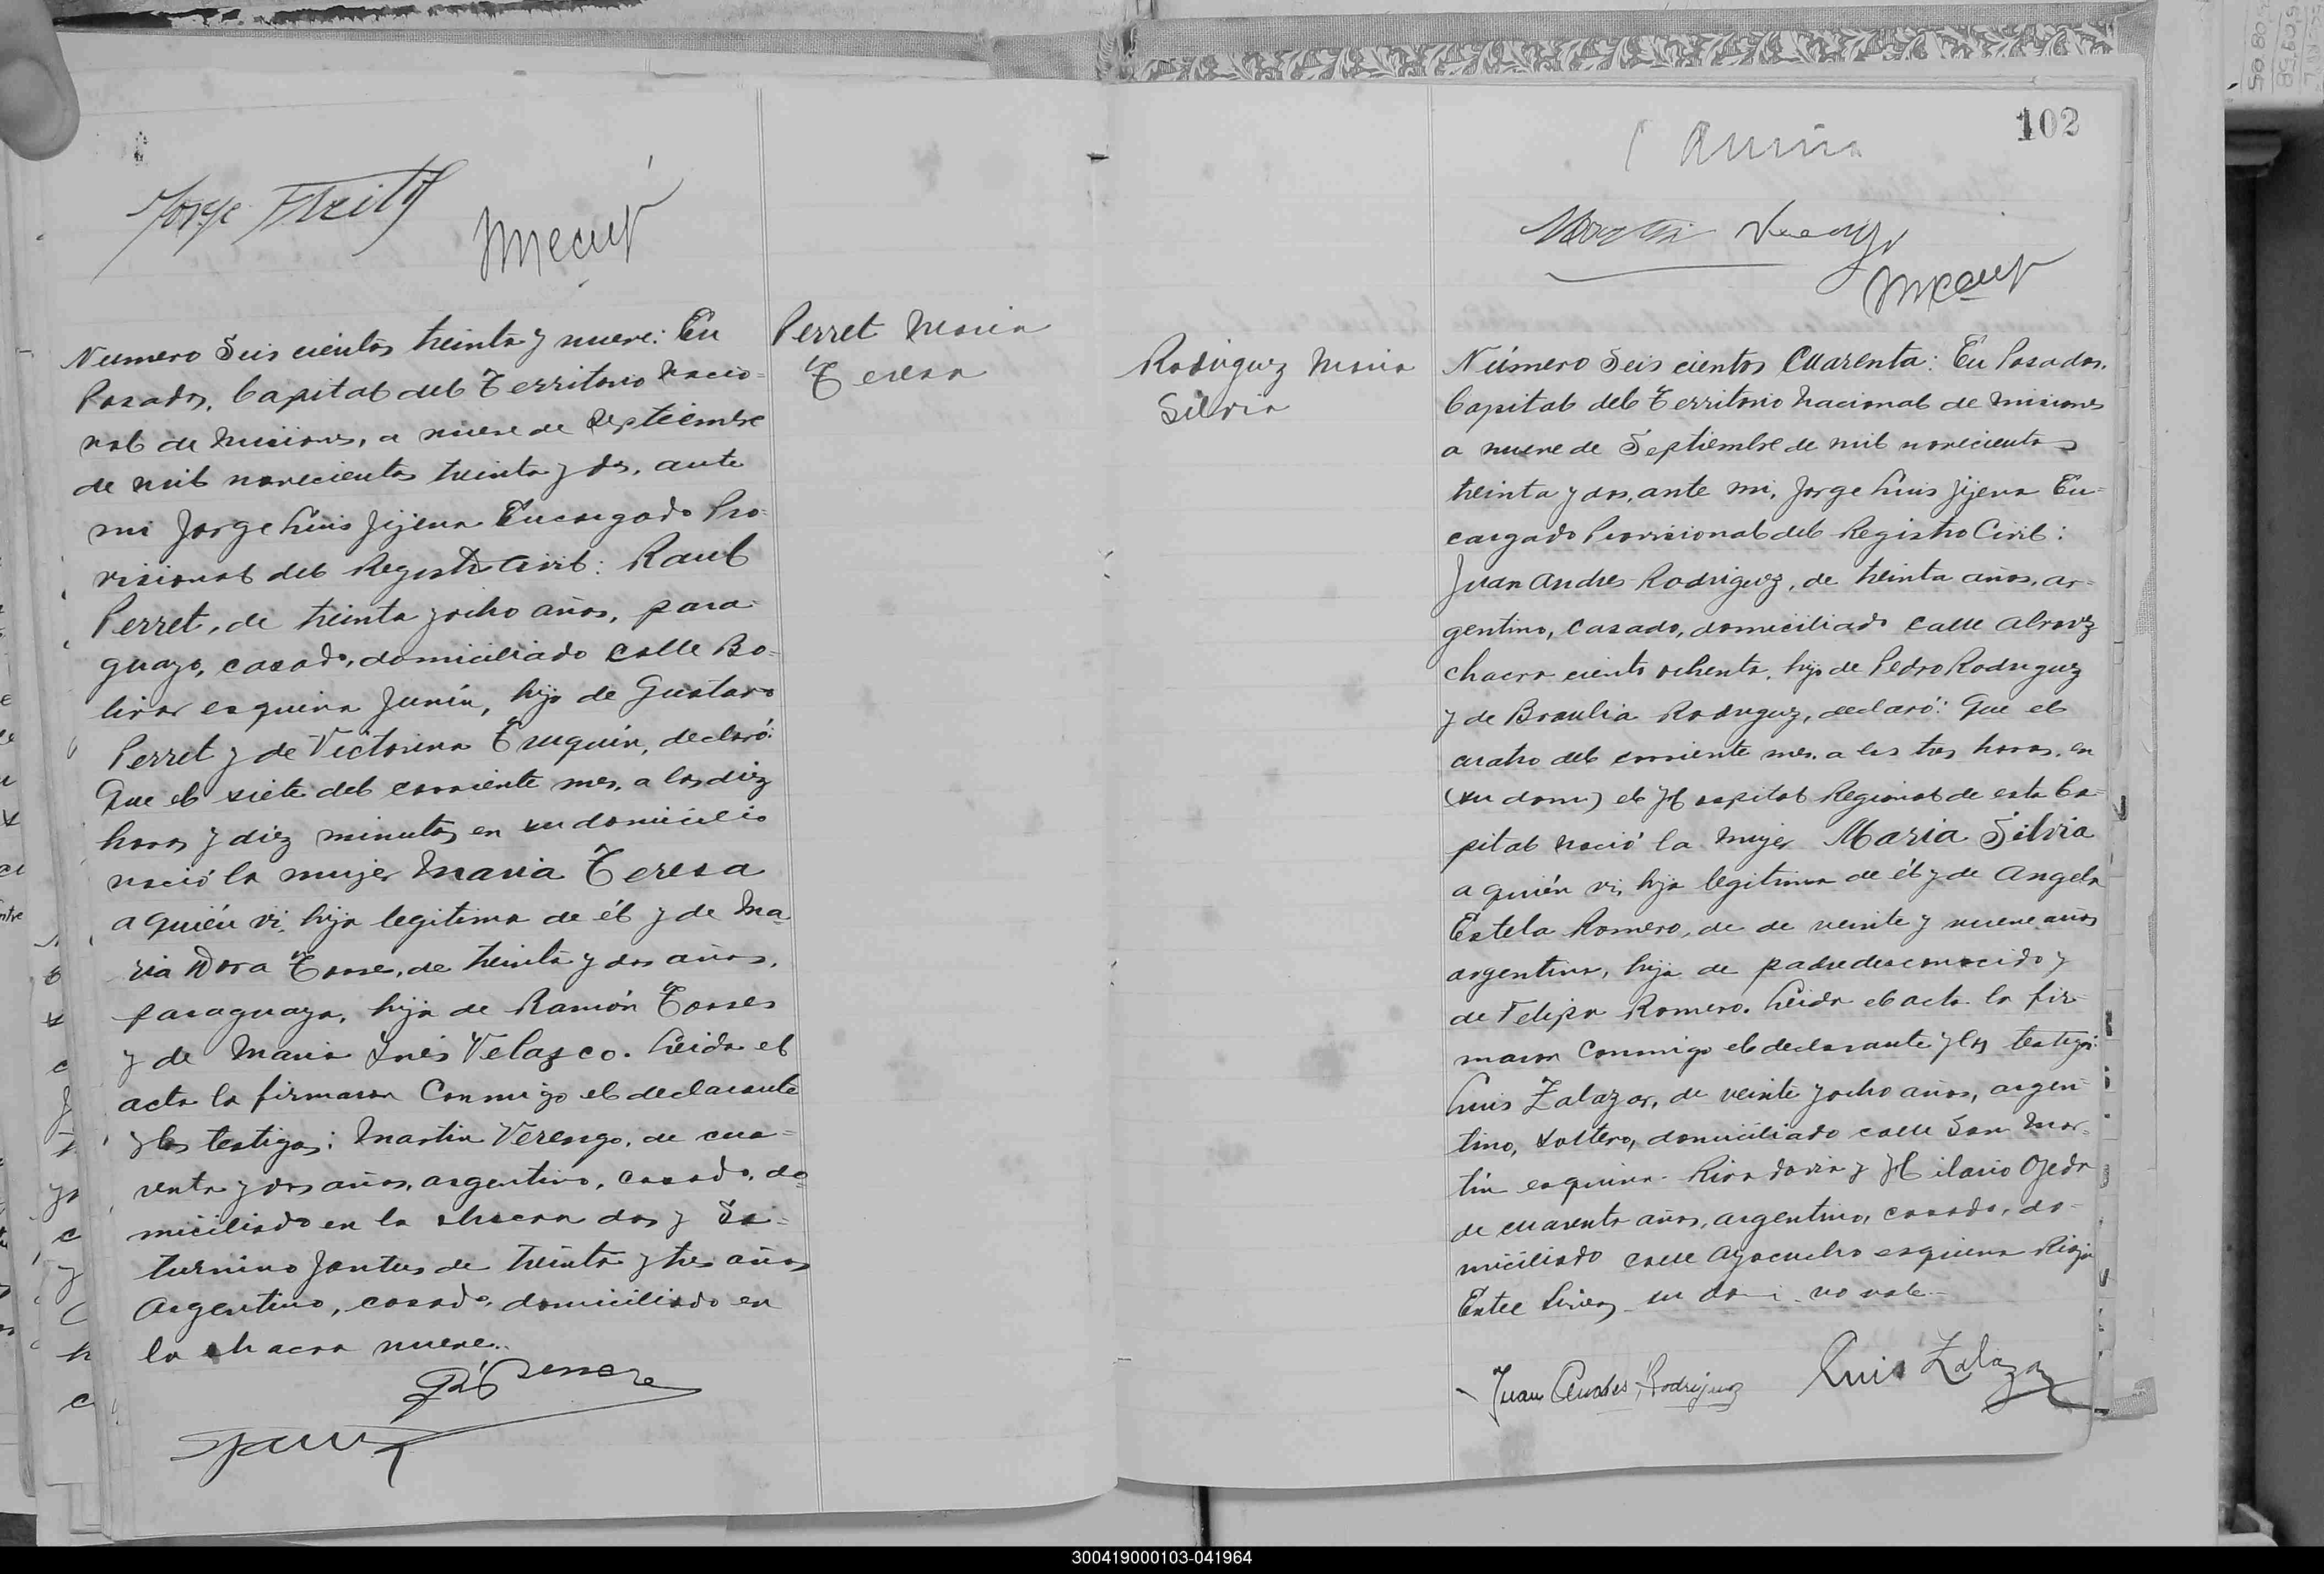 Jorge
Número Seis cientos treinta y nueve: En
Posadas, Capital del Territorio Nacio-
nal de Misiones, a nueve de Septiembre
de mil novecientos treinta y dos, ante
mi Jorge Luis Jijena Encargado Pro-
visional del Registro Civil: Raul
Perret, de treinta y ocho años, para-
guayo, casado, domiciliado calle Bo-
livar esquina Junín, hijo de Gustavo
Perret y de Victorina Truquin, declaró:
Que el siete del corriente mes, a las diez
horas y diez minutos en su domicilio
nació la mujer Maria Teresa
a quién vi, hija legitima de él y de Ma-
ria Dora Torres, de treinta y dos años,
paraguaya, hija de Ramón Torres
y de Maria Inés Velazco. Leida el
acta la firmaron Conmigo el declarante
y los testigos: Martin Verengo, de cua-
renta y dos años, argentino, casado, do-
miciliado en la chacra dos y Sa-
turnino Jontus de treinta y tres años
Argentino, casado, domiciliado en
la chacra nueve.
Perret Maria
Teresa
102
Rodriguez Maria
Silvia
Número Seis cientos Cuarenta: En Posadas,
Capital del Territorio Nacional de Misiones
a nueve de Septiembre de mil novecientos
treinta y dos, ante mi, Jorge Luis Jijena En-
cargado Provisional del Registro Civil:
Juan Andres Rodriguez, de treinta años, ar-
gentino, casado, domiciliado calle Alvarez
chacra ciento ochenta, hijo de Pedro Rodriguez
y de Braulia Rodriguez, declaró: Que el
cuatro del corriente mes, a las tres horas, en
(su domi) el Hospital Regional de esta Ca-
pital nació la mujer Maria Silvia
a quién vi, hija legitima de él y de Angela
Estela Romero, de de veinte y nueve años
argentina, hija de padre desconocido y
de Felipa Romero. Leida el acta la fir-
maron Conmigo el declarante y los testigos:
Luis Zalazar, de veinte y ocho años, argen-
tino, soltero, domiciliado calle San Mar-
tín esquina Rivadavia y Hilario Ojeda
de cuarenta años, argentino, casado, do-
miciliado calle Ayacucho esquina Rioja
Entre lineas su domi no vale
Juan Andres Rodriguez Luis Zalazar
300419000103-041964